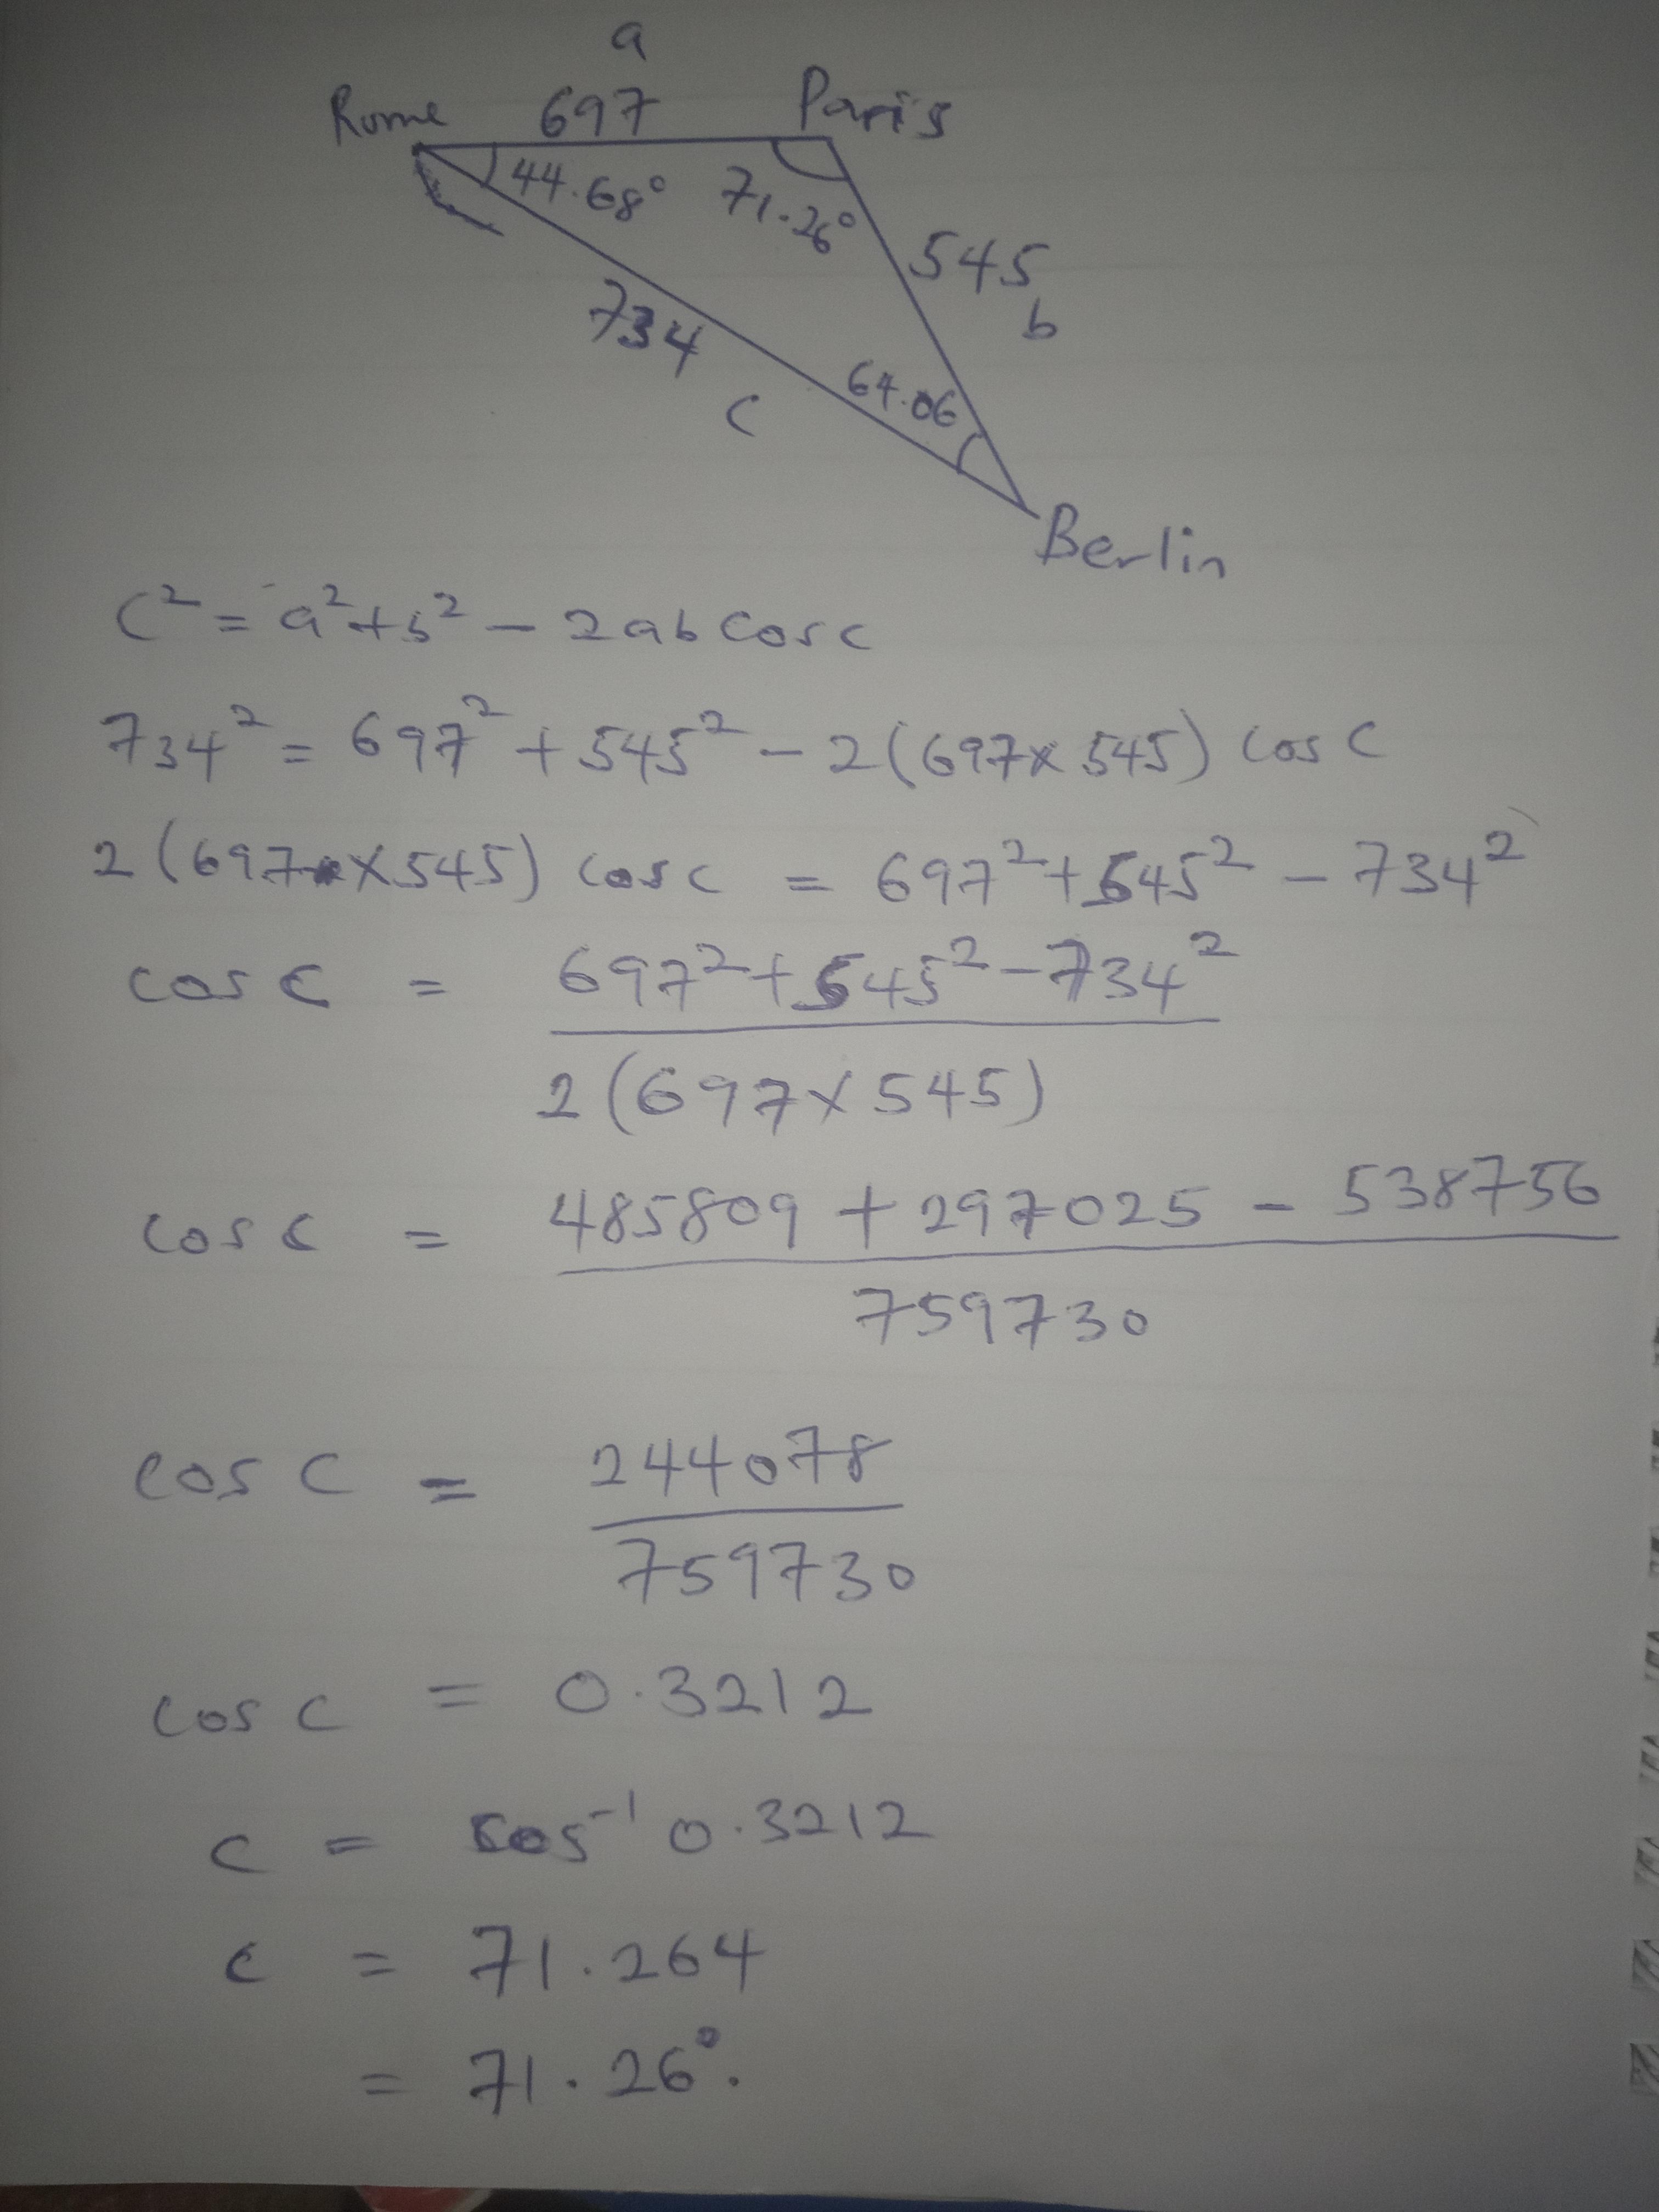 a
Rome 697 Paris
44.68° 71.26°
545
b
734
c
64.06
Berlin
c² = a² + b² - 2ab cos c
734² = 697² + 545² - 2(697 x 545) cos C
2(697 x 545) cos c = 697² + 545² - 734²
cos C = 697² + 545² - 734²
2(697 x 545)
cos C = 485809 + 297025 - 538756
759730
cos C = 244078
759730
cos C = 0.3212
C = cos⁻¹ 0.3212
C = 71.264
= 71.26°.